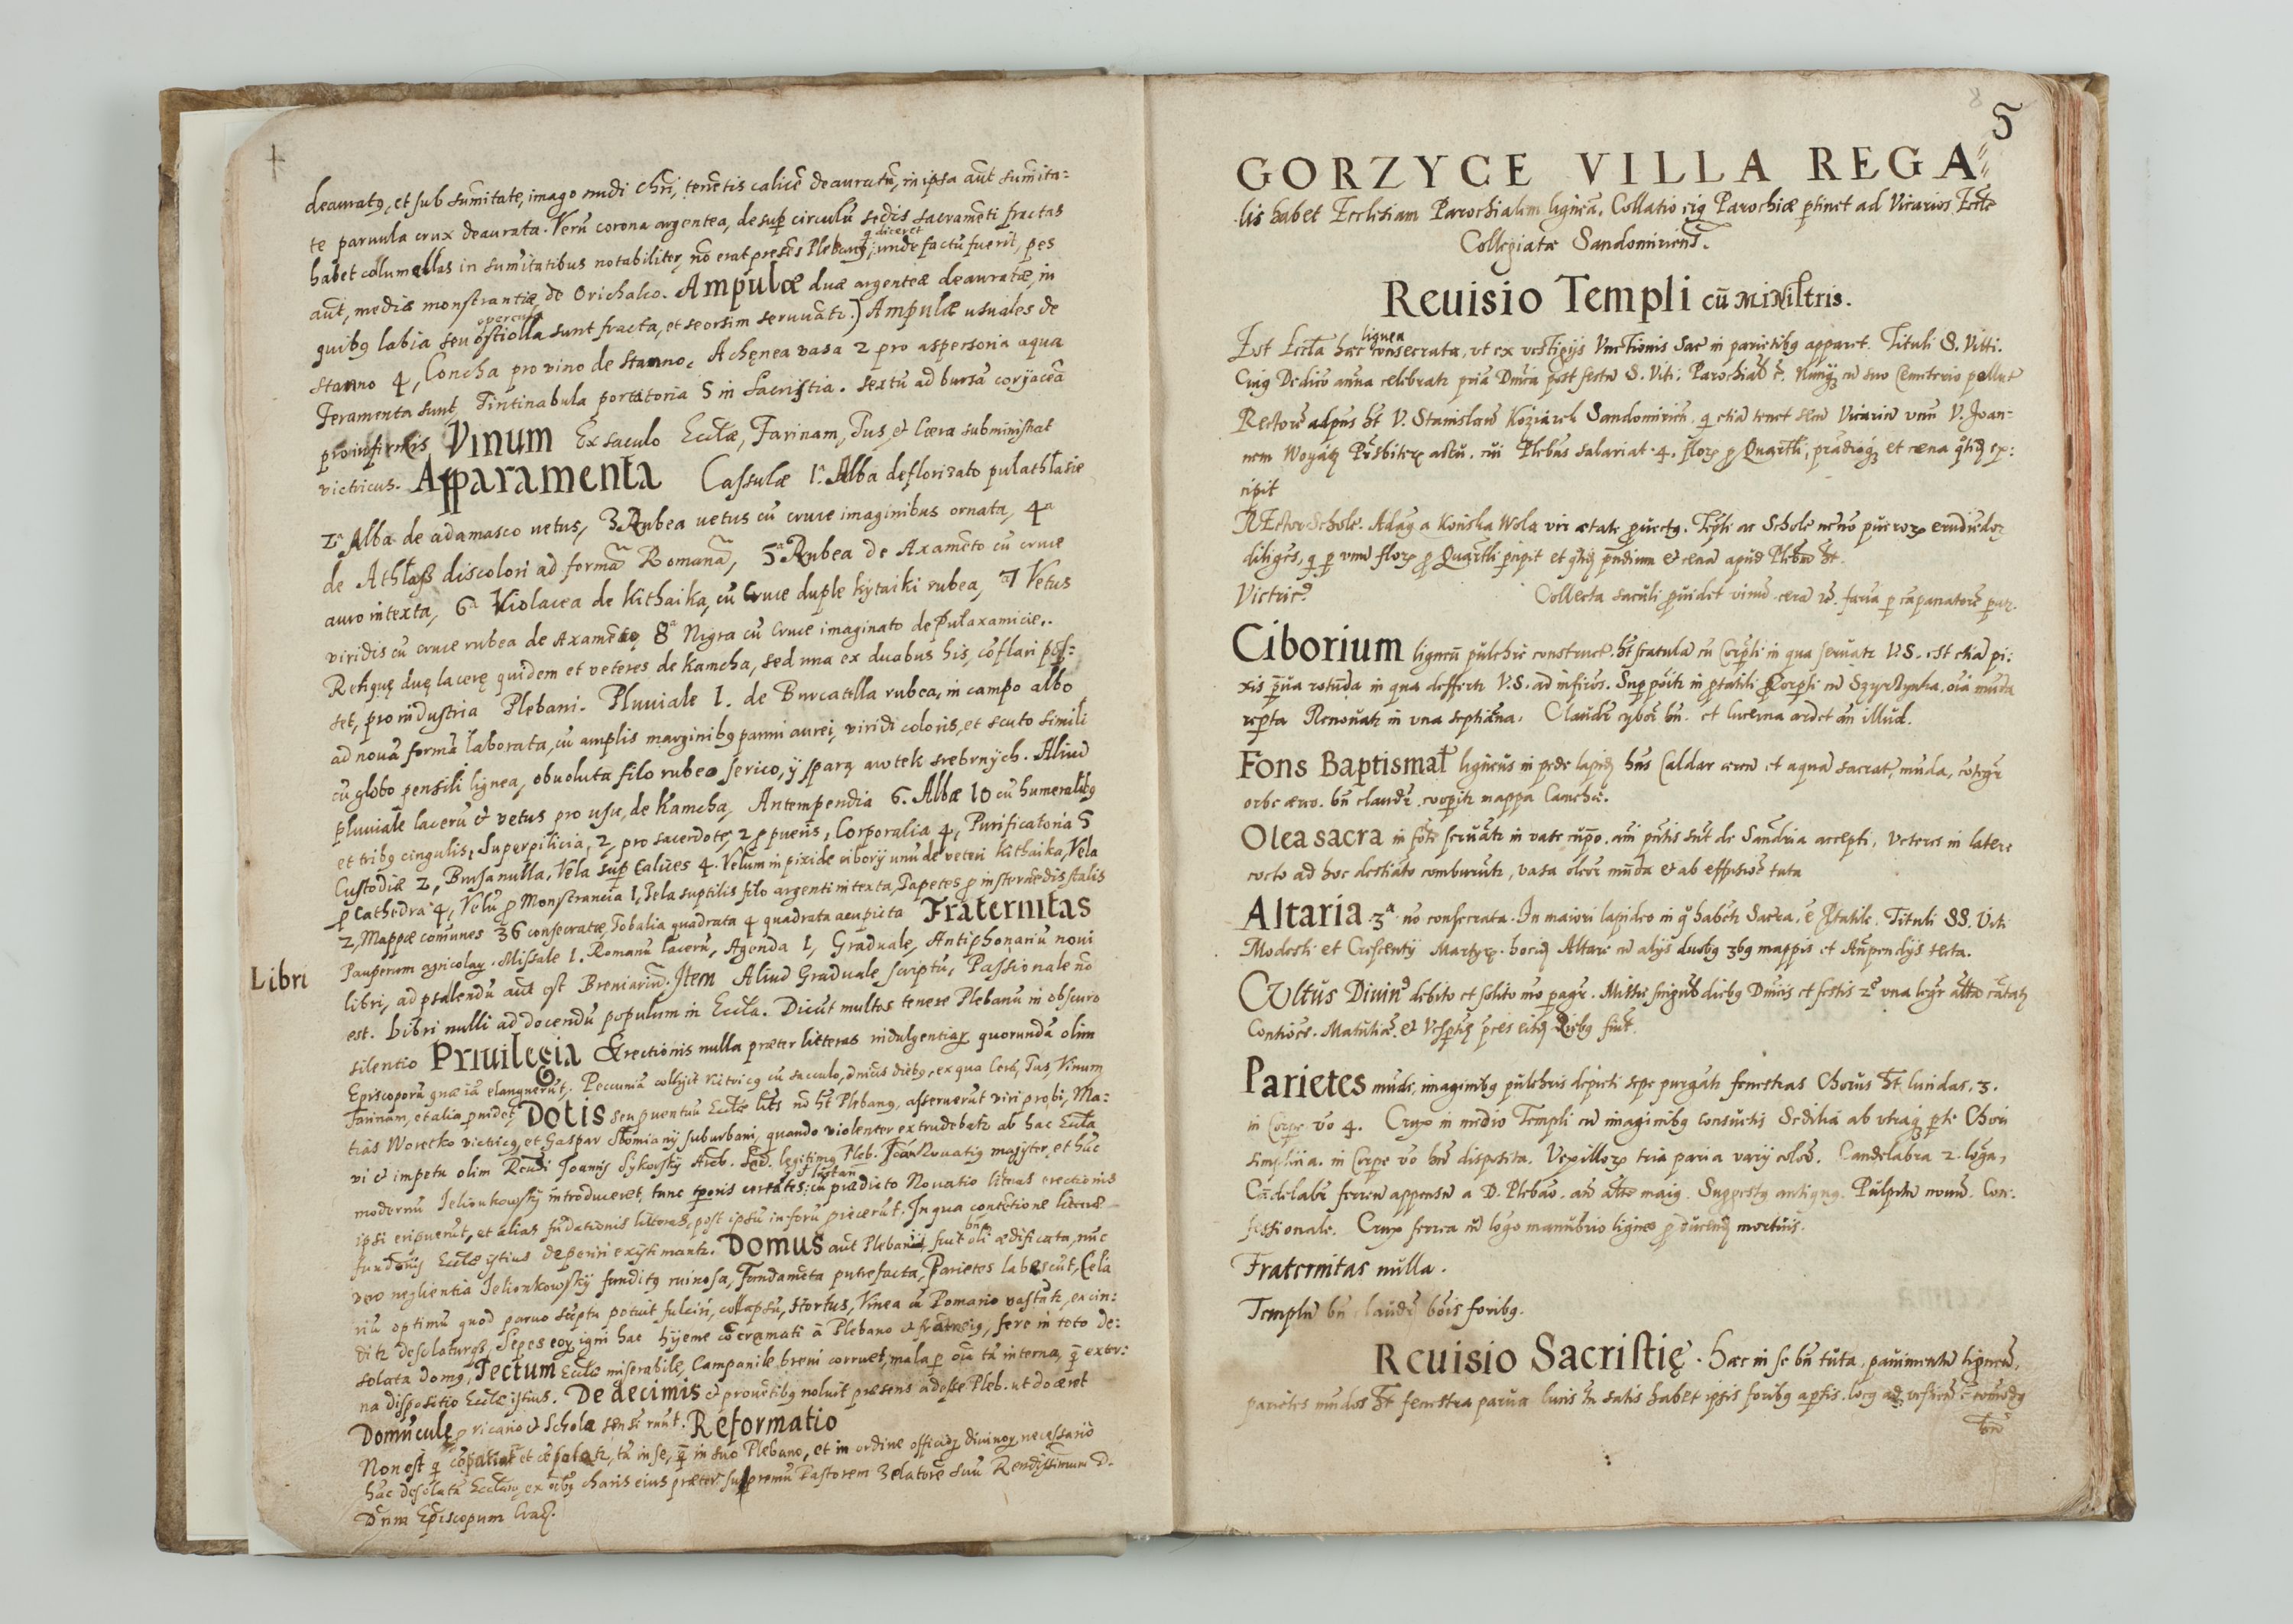 deauratꝰ, et sub sum̃itate, imago nudi Chri, tenẽtis calicẽ deauratũ, in ipsa aũt sum̃ita=
te paruula crux deaurata. Verũ corona argentea, desup̱ circulũ sedis sacramẽti fractas
q̃ diceret
habet columellas in sum̃itatibus notabiliter, nõ erat presẽs Plebanꝰ; unde factũ fuerit, pes
aũt, mediæ monstrantiæ, de Orichalco. Ampulæ duæ argenteæ deauratæ, in
opercula
quibꝰ labia seu ostiolla sunt fracta, et seorsim seruuãtr.) Ampulæ usuales de
stanno 4, Concha pro vino de stanno, Achęnea vasa 2 pro aspersoria aqua
Feramenta sunt, Tintinabula portatoria 5 in Sacristia. sextũ ad bursã corÿaceã
pro infirmis Vinum Ex saculo Eccłæ, Farinam, Tus, & Cæra subministrat
victricus. Apparamenta Cassulæ 1.ª Alba deflorizato pulathlasie
2.ª Alba de adamasco uetus, 3 Rubea uetus cũ cruce imaginibus ornata, 4ª
de Athłaß discolori ad formã Romanã, 5ª Rubea de Axamẽto cũ cruce
auro intexta, 6ª Violacea de Kithaika, cũ Cruce duple kÿtaiki rubea, 7ª Vetus
viridis cũ cruce rubea de Axamẽto, 8ª Nigra cũ Cruce imaginato de Pułaxamicie.
Reliquę duę lacerę quidem et veteres de kamcha, sed una ex duabus his, cõflari pos=
set, pro industria Plebani. Pluuiale 1. de Burcatella rubea, in campo albo
ad nouã formã laborata, cũ amplis marginibꝰ panni aurei, viridi coloris, et scuto simili
cũ globo pensili lignea, obuoluta filo rubeo serico, ÿ sparą awtek srebrnÿch. Aliud
pluuiale lacerũ & vetus pro usu, de Kamcha, Antempendia 6. Albæ 10 cũ humeralibꝰ
et tribꝰ cingulis, Superpilicia, 2, pro sacerdote, 2 p̱ pueris, Corporalia 4, Purificatoria 5
Custodiæ 2, Bursa nulla, Vela sup̱ Calices 4. Velum in pixide ciborÿ unũ de veteri Kithaika, Vela
p̱ Cathedra 4, Velũ p̱ Monstrancia 1, Tela suptilis filo argenti intexta, Tapetes p̱ insternedis stalis
2, Mappæ comunes 36 consecratæ, Tobalia quadrata 4 quadrata acupicta Fraternitas
Pauperum agricolaꝝ. Missale 1. Romanũ lacerũ, Agenda 1, Graduale, Antiphonariũ noui
Libri
libri, ad psalendũ aũt est Breuiariũ. Item Aliud Graduale scriptũ, Passionale nõ
est. Libri nulli ad docendũ populum in Eccła. Dicũt multos tenere Plebanũ in obscuro
silentio Priuilegia Erectionis nulla præter litteras indulgentiaꝝ quorundã olim
Episcoporũ quæ iã elanguerũt. Pecuniã collÿcit Vitricꝰ cũ sacculo, dnicis diebꝰ, ex qua Cerã, Tus, Vinum,
Farinam, et alia p̱uidet. Dotis seu p̱uentuũ Eccłæ litas nõ hẽt Plebanꝰ, asseruerũt viri probi, Ma=
tias Woretko victricꝰ, et Gaspar Słomianÿ suburbani, quando violenter extrudebatr ab hac Eccła
vi & impetu olim Rendi Joannis Sÿkorskÿ Arcb. Sed. legitimꝰ Pleb. Joãn Nouatiꝰ magister, et hũc
modernũ Jelionkowskÿ introduceret, tunc tp̱oris certãtes: cũ prædicto Nouatio literas erectionis
ipsi eripuerũt, et alias fũdationis litteras, post ipsũ in forũ p̱iecerũt. In qua contẽtione literæ
fundoris Eccłæ istius deperiri existimantr. Domus aũt Plebanii, fuit oli bñ ædificata, nũc
vero neglientia Jelionkowskÿ funditꝰ ruinosa, Fundamẽta putrefacta, Parietes labescũt, Cela
riũ optimũ quod paruo sũptu potuit fulciri, collapsũ, Hortus, Vinea cũ Pomario vastãtr, excin:
ditr desolaturqꝫ, Sepes eoꝝ igni hac hÿeme cõcremati ã Plebano & fratre eiꝰ, fere in toto de:
solata domꝰ, Tectum Eccłæ miserabile, Campanile breui corruet, mala p̱ oĩa tã interna, q̃ exter:
na dispositio Eccłæ istius. De decimis & prouẽtibꝰ noluit præsens adesse Pleb. ut doceret
Domũculę p̱ vicario & Schola senserunt. Reformatio
Non est q̃ cõpatiat et cõpatatr, tã in se, q̃ in suo Plebano, et in ordine officioꝝ diuinoꝝ necessario
hãc desolatã Ecclam, ex oĩbꝰ charis eius præter supremũ Pastorem Zelatorẽ suũ Rendissimum D.
Dnm Episcopum Crac̃.
5
GORZYCE VILLA REGA=
lis habet Ecclesiam Parochialem ligneã. Collatio eiꝰ Parochiæ p̱tinet ad Vicarios Eccłæ
Collegiatæ Sandomiriens̃.
Reuisio Templi cũ MiNistris.
lignea
Est Eccła hæc consecrata, vt ex vestigÿs Vnctionis sac̃ in parietibꝰ apparet. Tituli S. Vitti.
Cuiꝰ Dedico anna celebratr pria Dnica post festũ S. Viti. Parochial ẽ. Muniꝫ cũ suo Cemiterio pollut̃
Rectorẽ adpñs ht V. Stanislaũ Koziarek Sandomirieñ. q̃ etia tenet secũ Vicariũ vnũ V. Joan=
nem Woyatꝫ Præsbiterꝝ actu. cui Plebñs salariat. 4. floꝝ p̱ Quartłi, prandiaqꝫ et cæna ex:
cipit
REctor Scholæ. Adaꝰ a Konska Wola vir ætate p̱uectꝰ. Tẽpli ac Scholæ pueroꝝ erudiedoꝝ
diligẽs, q̃ p̱ vnũ floꝝ p̱ Quartłi p̱cipit et prãdium & cena apud Plebñũ ht.
Victricꝰ Collecta saculi p̱uidet vinũ cera p̱ cãpanatorẽ
Ciborium ligneũ pulchre construct. ht scatula cũ Corp̱łi in qua seruatr V.S. est etia pi:
xis p̱ua rotũda in qua deffertr V.S. ad infiros. Sup̱ põitr in p̱tatili Corp̱łi cũ Szyrzynka, oĩa mũda
rep̱ta Renouatr in vna septiãna. Claudr cybor bñ. et lucerna ardet ãn illud.
Fons Baptismał ligneus in pede lapideꝰ hñs Caldar æreũ et aquã sacrat, muda, cõtegr
orbe æreo. bñ claudr. coop̱itr mappa Camcha.
Olea sacra in fõte seruãtr in vase cupo. ani p̱ntis sũt de Sandria accepti, Veteres in latere
cocto ad hoc destiato comburũtr, vasa oleoꝝ mũda & ab effusiõe tuta
Altaria 3ª nõ consecrata. In maiori lapideo in q̃ habetr Sacra. ẽ p̱tatile. Tituli SS. Viti
Modesti et Crescentÿ Martyrꝝ. hociꝫ Altare cũ alÿs duobꝰ 3bꝰ mappis et Antipendÿs tecta.
CVltus Diuinꝰ debito et solito mo p̱agr. Missæ singulis diebꝰ Dnicis et festis 2ᵉ vna legr altã cãtatr
Contioes. Matutiæ. et Vesp̱tꝫ p̱ces eisdꝫ diebꝰ fiũt.
Parietes mũdi, imaginibꝰ pulchris depicti sepe purgãtr fenestras Chorus ht lucidas. 3.
in Corpe võ 4. Crux in medio Templi cũ imaginibꝰ consuetis Sedilia ab vtraqꝫ p̱te Chori
simplicia. in Corpe võ bñ disposita. Vexilloꝝ tria paria vary coloũ. Candelabra 2. loga,
Cãdelabr ferreũ appensũ a D. Plebão. an altre maiꝰ. Suggestꝰ antiquꝰ. Pulpitũ nouũ. Con:
fessionale. Crux ferrea cũ logo manubrio ligneo p̱ duceñ mortuis.
Fraternitas nulla.
Templũ bñ claudr bois foribꝰ.
Reuisio Sacristię. Hæc in se bñ tuta, pauimentũ ligneũ,
parietes mũdos ht fenestra parua lucis tñ satis habet ipsis foribꝰ ap̱tis. locꝰ ad vestiend ẽ cõmodꝰ